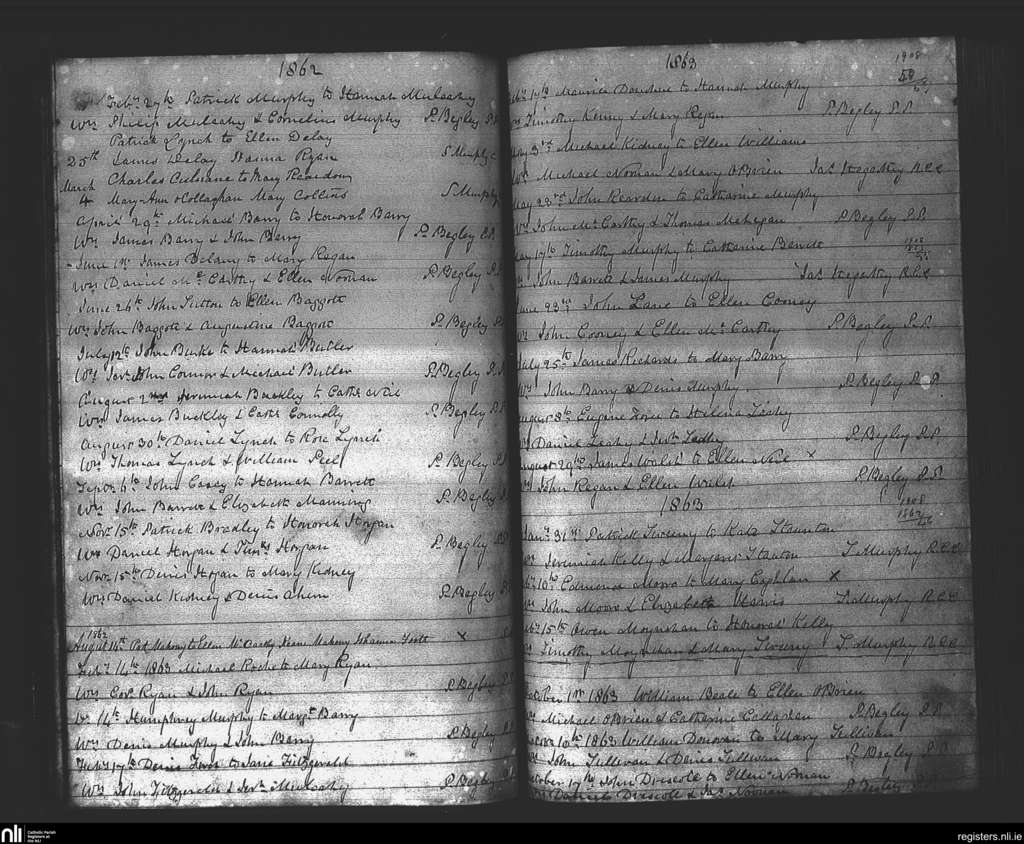 1862
Feby. 27th Patrick Murphy to Hannah Mulcahy
Wn. Philip Mulcahy & Cornelius Murphy P. Begley P.P.
Patrick Lynch to Ellen Delay
25th James Delay Hanna Ryan S Murphy c
March Charles Culnane to Mary Reardon
4 Mary Ann O Collaghan Mary Collins S Murphy
April 29th Michael Barry to Honorah Barry
Wn. James Barry & John Barry P. Begley P.P.
June 1st James Delany to Mary Regan
Wn. Daniel Mc Carthy & Ellen Noonan P. Begley P.P.
June 26th John Sutton to Ellen Baggott
Wn. John Baggott & Augustine Baggott P. Begley P.P.
July 12th John Burke to Hannah Butler
Wn. John Connor & Michael Butler P. Begley P.P.
August 2nd Jeremiah Buckley to Cathe. Neil
Wn. James Buckley & Cathe. Connolly P. Begley P.P.
August 30th Daniel Lynch to Rose Lynch
Wn. Thomas Lynch & William Peel P. Begley P.P.
Septr. 6th John Casey to Hannah Barrett
Wn. John Barrett & Elizabeth Manning P. Begley P.P.
Novr. 15th Patrick Bradley to Honorah Horgan
Wn. Daniel Horgan & Horgan P. Begley P.P.
Novr. 15th Denis Horgan to Mary Kidney
Wn. Daniel Kidney & Denis Ahern P. Begley P.P.
1862
August 14th Pat Mahony to Ellen McCarthy Mahony Scott x
Feby. 14th 1863 Michael Roche to Mary Ryan
Wn. Cors. Ryan & John Ryan P. Begley P.P.
14th Humphrey Murphy to Margt. Barry
Wn. Denis Murphy & John Barry P. Begley P.P.
Feby. 17th Denis to Jane Fitzgerald
Wn. John Fitzgerald & Mulcahy P. Begley P.P.
1863
1908
17th Maurice Donohue to Hannah Murphy
Timothy Kenny & Mary Ryan P. Begley P.P.
3rd Michael Kidney to Ellen Williams
Michael Noonan & Mary O'Brien Jas. Hegarty R.C.C.
May 23rd John Reardon to Catharine Murphy
John McCarthy & Thomas Mehegan P. Begley P.P.
May 17th Timothy Murphy to Catharine Barrett
John Barrett & James Murphy Jas. Hegarty R.C.C.
June 23rd John Lane to Ellen Cooney
John Cooney & Ellen Mc Carthy P. Begley P.P.
July 25th James Richards to Mary Barry
John Barry & Denis Murphy P. Begley P.P.
August 8th Eugene to Helena Leahy
Daniel Leahy & P. Begley P.P.
August 29th James Walsh to Ellen Neil x
John Regan & Ellen Welsh P. Begley P.P.
1863
1908
1862
46
Jany. 31st Patrick Twomy to Kate Staunton
Jeremiah Kelly & Margaret Stanton T. Murphy R.C.C.
10th Edmond Moore to Mary Coghlan x
John Moore & Elizabeth Harris T. Murphy R.C.C.
15th Owen Moynihan to Honorah Kelly
Timothy Moynihan & Mary Twomy T. Murphy R.C.C.
October 1st 1863 William Beale to Ellen O'Brien
Michael O'Brien & Catharine Callaghan P. Begley P.P.
10th 1863 William Donovan to Mary Sullivan
John Sullivan & Denis Sullivan P. Begley P.P.
October 17th John Driscoll to Ellen Noonan
Daniel Driscoll & Jas. Noonan P. Begley P.P.
nli
Catholic Parish
Registers at
the NLI
registers.nli.ie